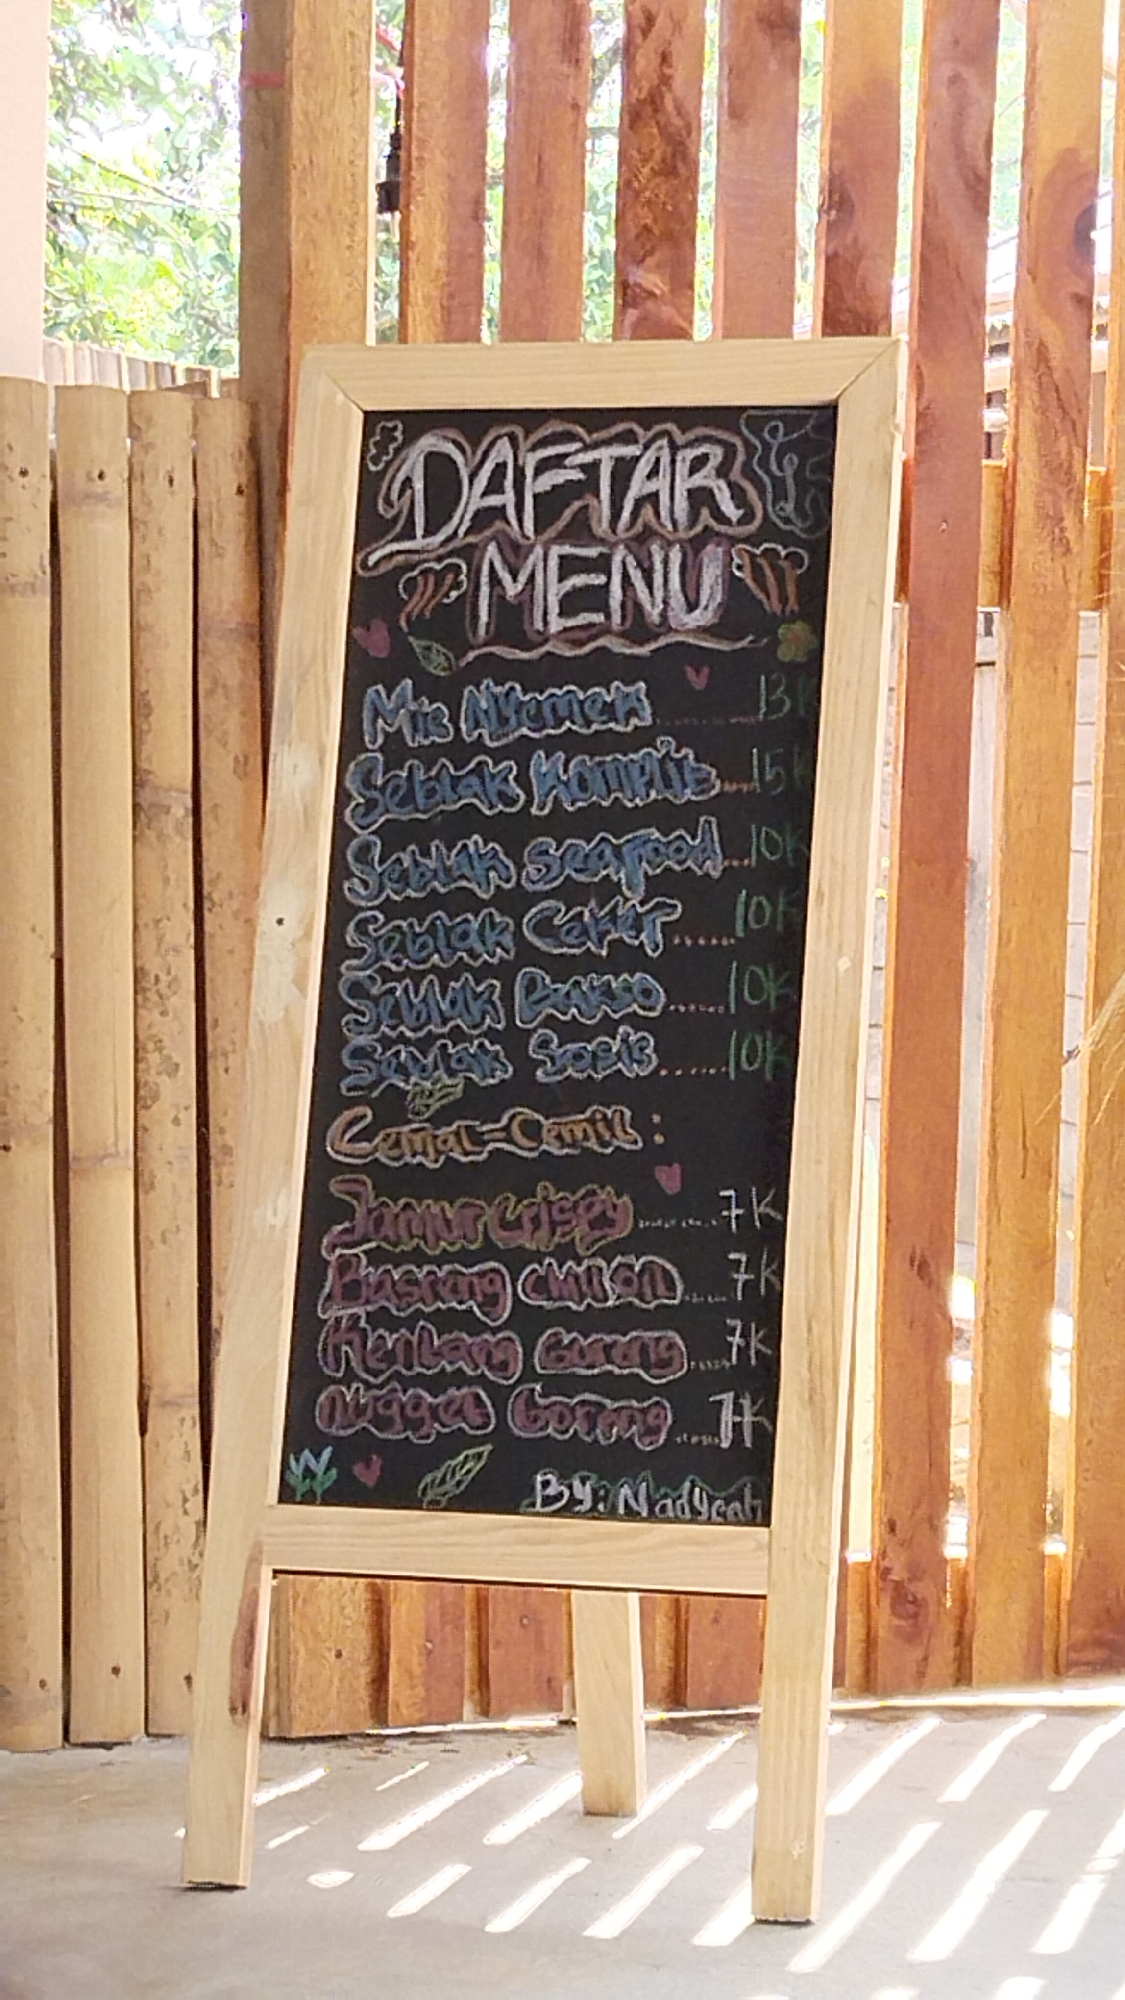 DAFTAR
MENU
Mie Nyemek ........ 13K
Seblak Komplit ..... 15K
Seblak seafood ... 10K
Seblak Ceker ...... 10K
Seblak Bakso ....... 10K
Seblak Sosis ...... 10K
Cemal-Cemil :
Jamur Crispy ........ 7K
Basreng Chili oil ...... 7K
Kentang Goreng ...... 7K
Nugget Goreng ...... 7K
By: Nadyeah